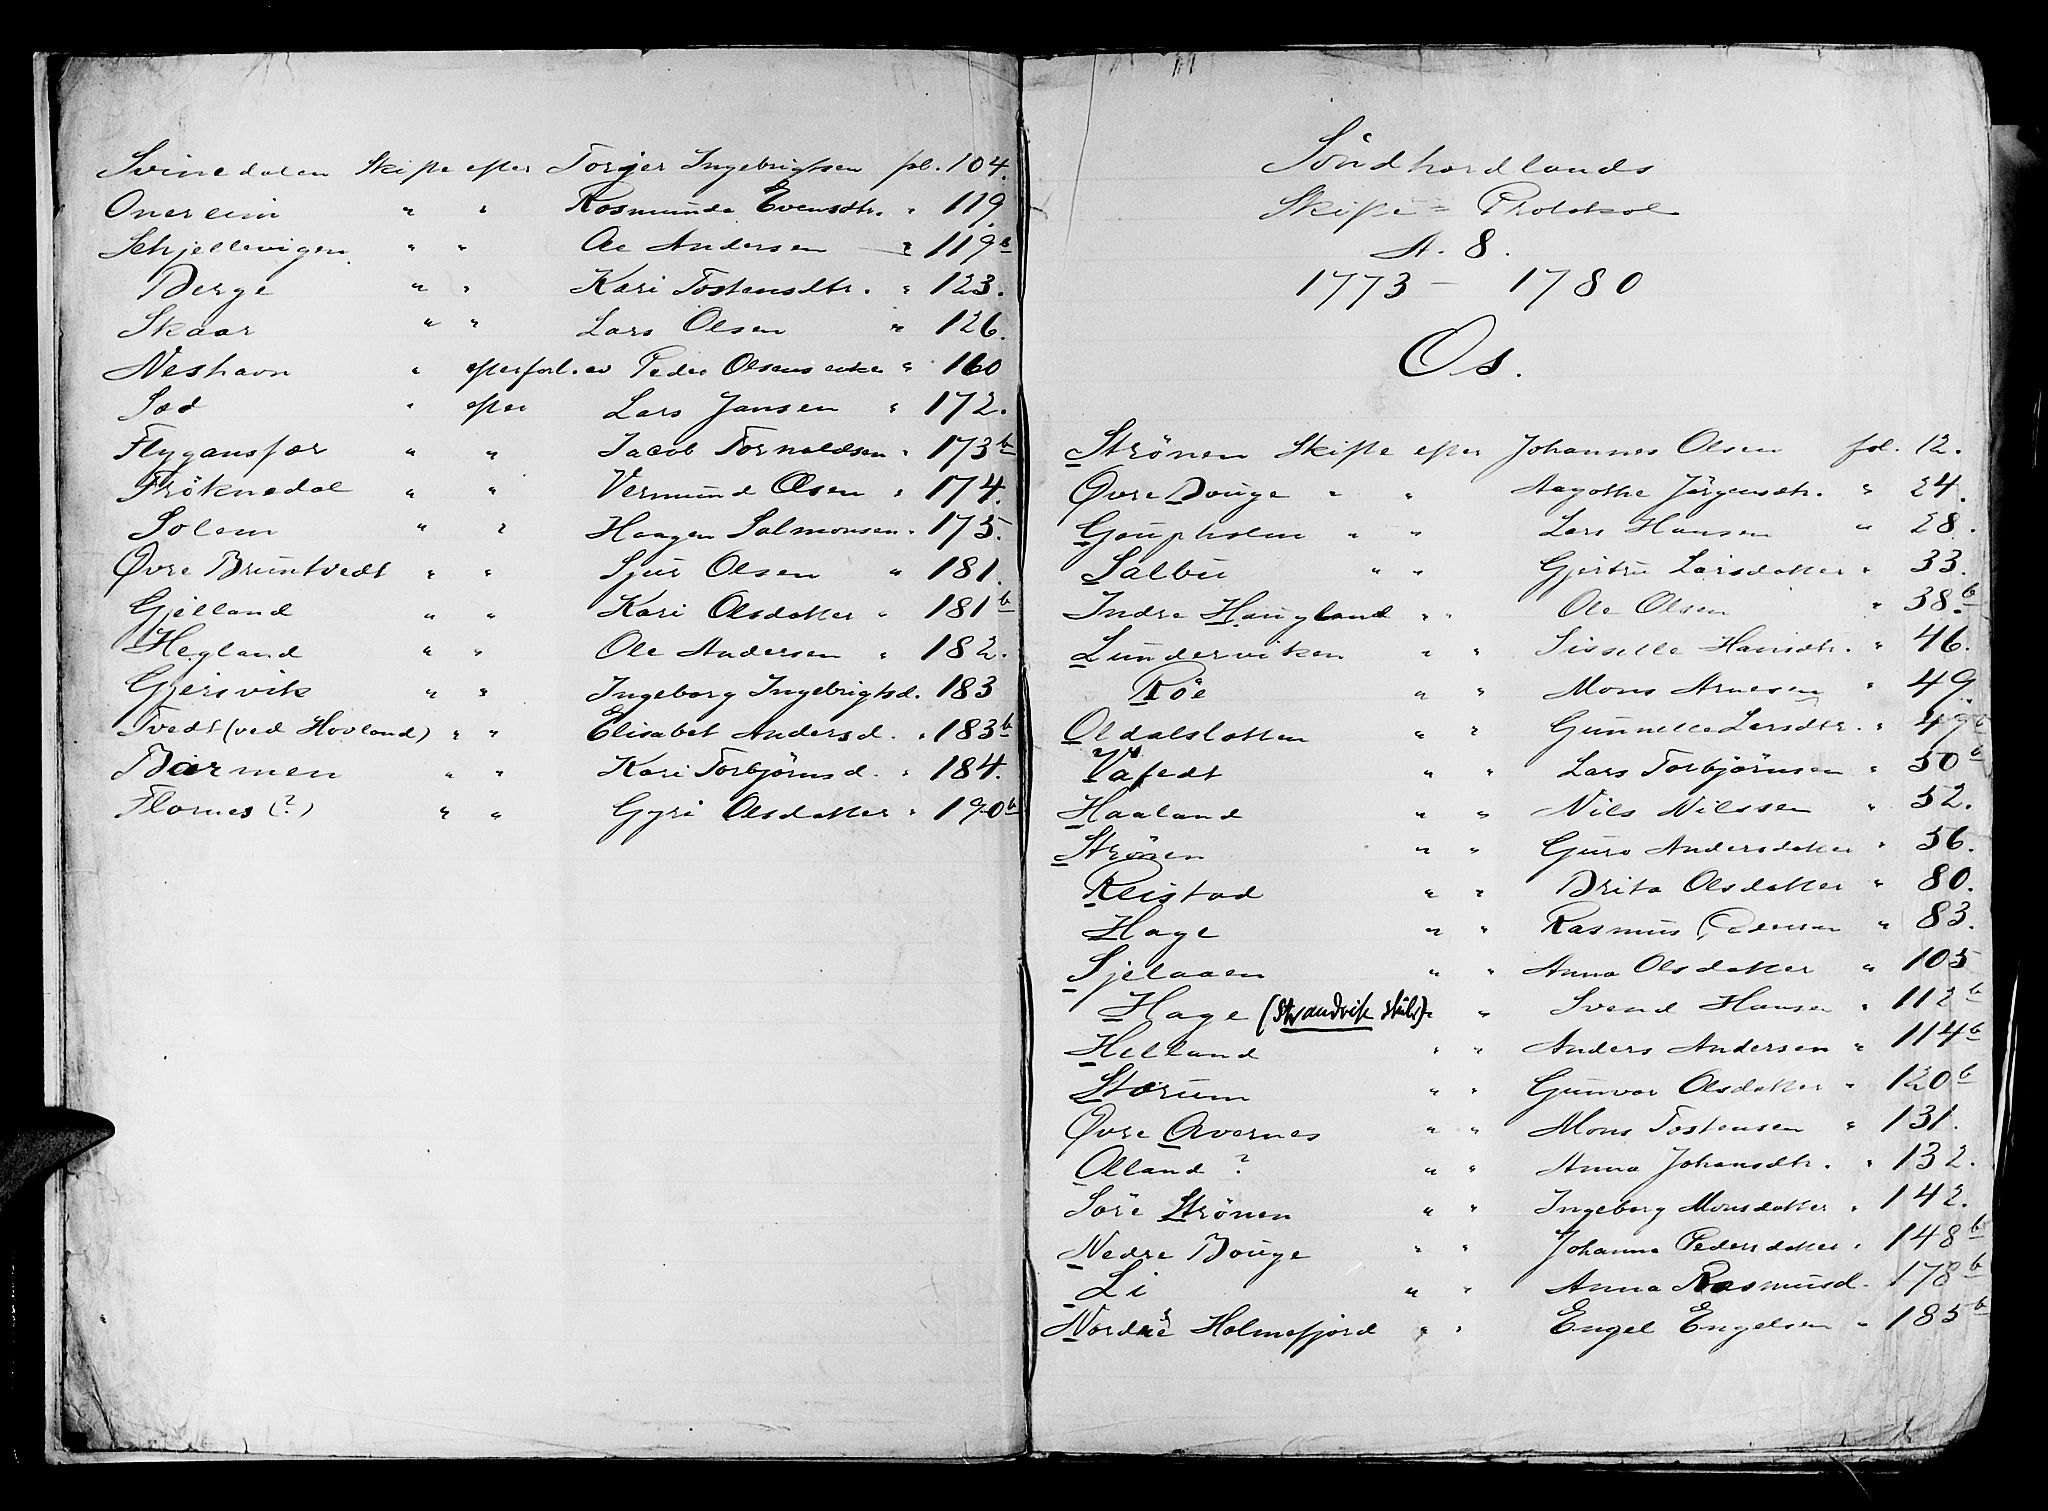 Svinedalen Skifte efter Torger Ingebrigtsen fol. 104.
Onereim " " Rosmunda Evensdtr. " 119.
Schjellevigen " " Ole Andersen " 119b
Berge " " Kari Tostensdtr. " 123.
Skaar " " Lars Olsen " 126.
Neshavn " efterforl. av Peder Olsens enke " 160
Sæd " efter Lars Jansen " 172.
Flygansfær " " Jacob Tormoldsen " 173b
Frøknedal " " Vermund Olsen " 174.
Solem " " Haagen Salmonsen " 175.
Øvre Bruntvedt " " Sjur Olsen " 181.
Gjelland " " Kari Olsdatter " 181b
Hegland " " Ole Andersen " 182.
Gjersvik " " Ingeborg Ingebrigtsd. 183
Tvedt (ved Hovland) " " Elisabet Andersd. " 183b
Bærmen " " Kari Torbjörnsd. " 184.
Flornes (?) " " Gyri Olsdatter " 190b
Söndhordlands
Skifte = Protokol
A. 8.
1773 - 1780
Os.
Strönen Skifte efter Johannes Olsen fol. 12.
Øvre Bouge " " Aagothe Jörgensdtr. " 24.
Goupholm " " Lars Hansen " 28.
Salbu " " Gjertru Larsdatter " 33.
Indre Haugland " " Ole Olsen " 38.b
Lunderviken " " Sisselle Hansdtr. " 46.
Röe " " Mons Arnesen " 49.
Oldalslotten " " Gunnelle Larsdtr. " 49b
" " Lars Torbjörnsen " 50b
Haaland " " Nils Nilssen " 52.
Strönen " " Guro Andersdatter " 56.
Reistad " " Brita Olsdatter " 80.
Hage " " Rasmus Pedersen " 83.
Sjelaaen " " Anna Olsdatter " 105
Hage (Strandvik skibr) " " Svend Hansen " 112b
Helland " " Anders Andersen " 114b
Stærum " " Gunvor Olsdatter " 120b
Øvre Qvernes " " Mons Tostensen " 131.
Olland ? " " Anna Johansdtr. " 132.
Söre Strönen " " Ingeborg Monsdatter " 142.
Nedre Bouge " " Johanna Pedersdatter " 148b
Li " " Anna Rasmusd. 178b
Nordre Holmefjord " " Engel Engelsen " 185b